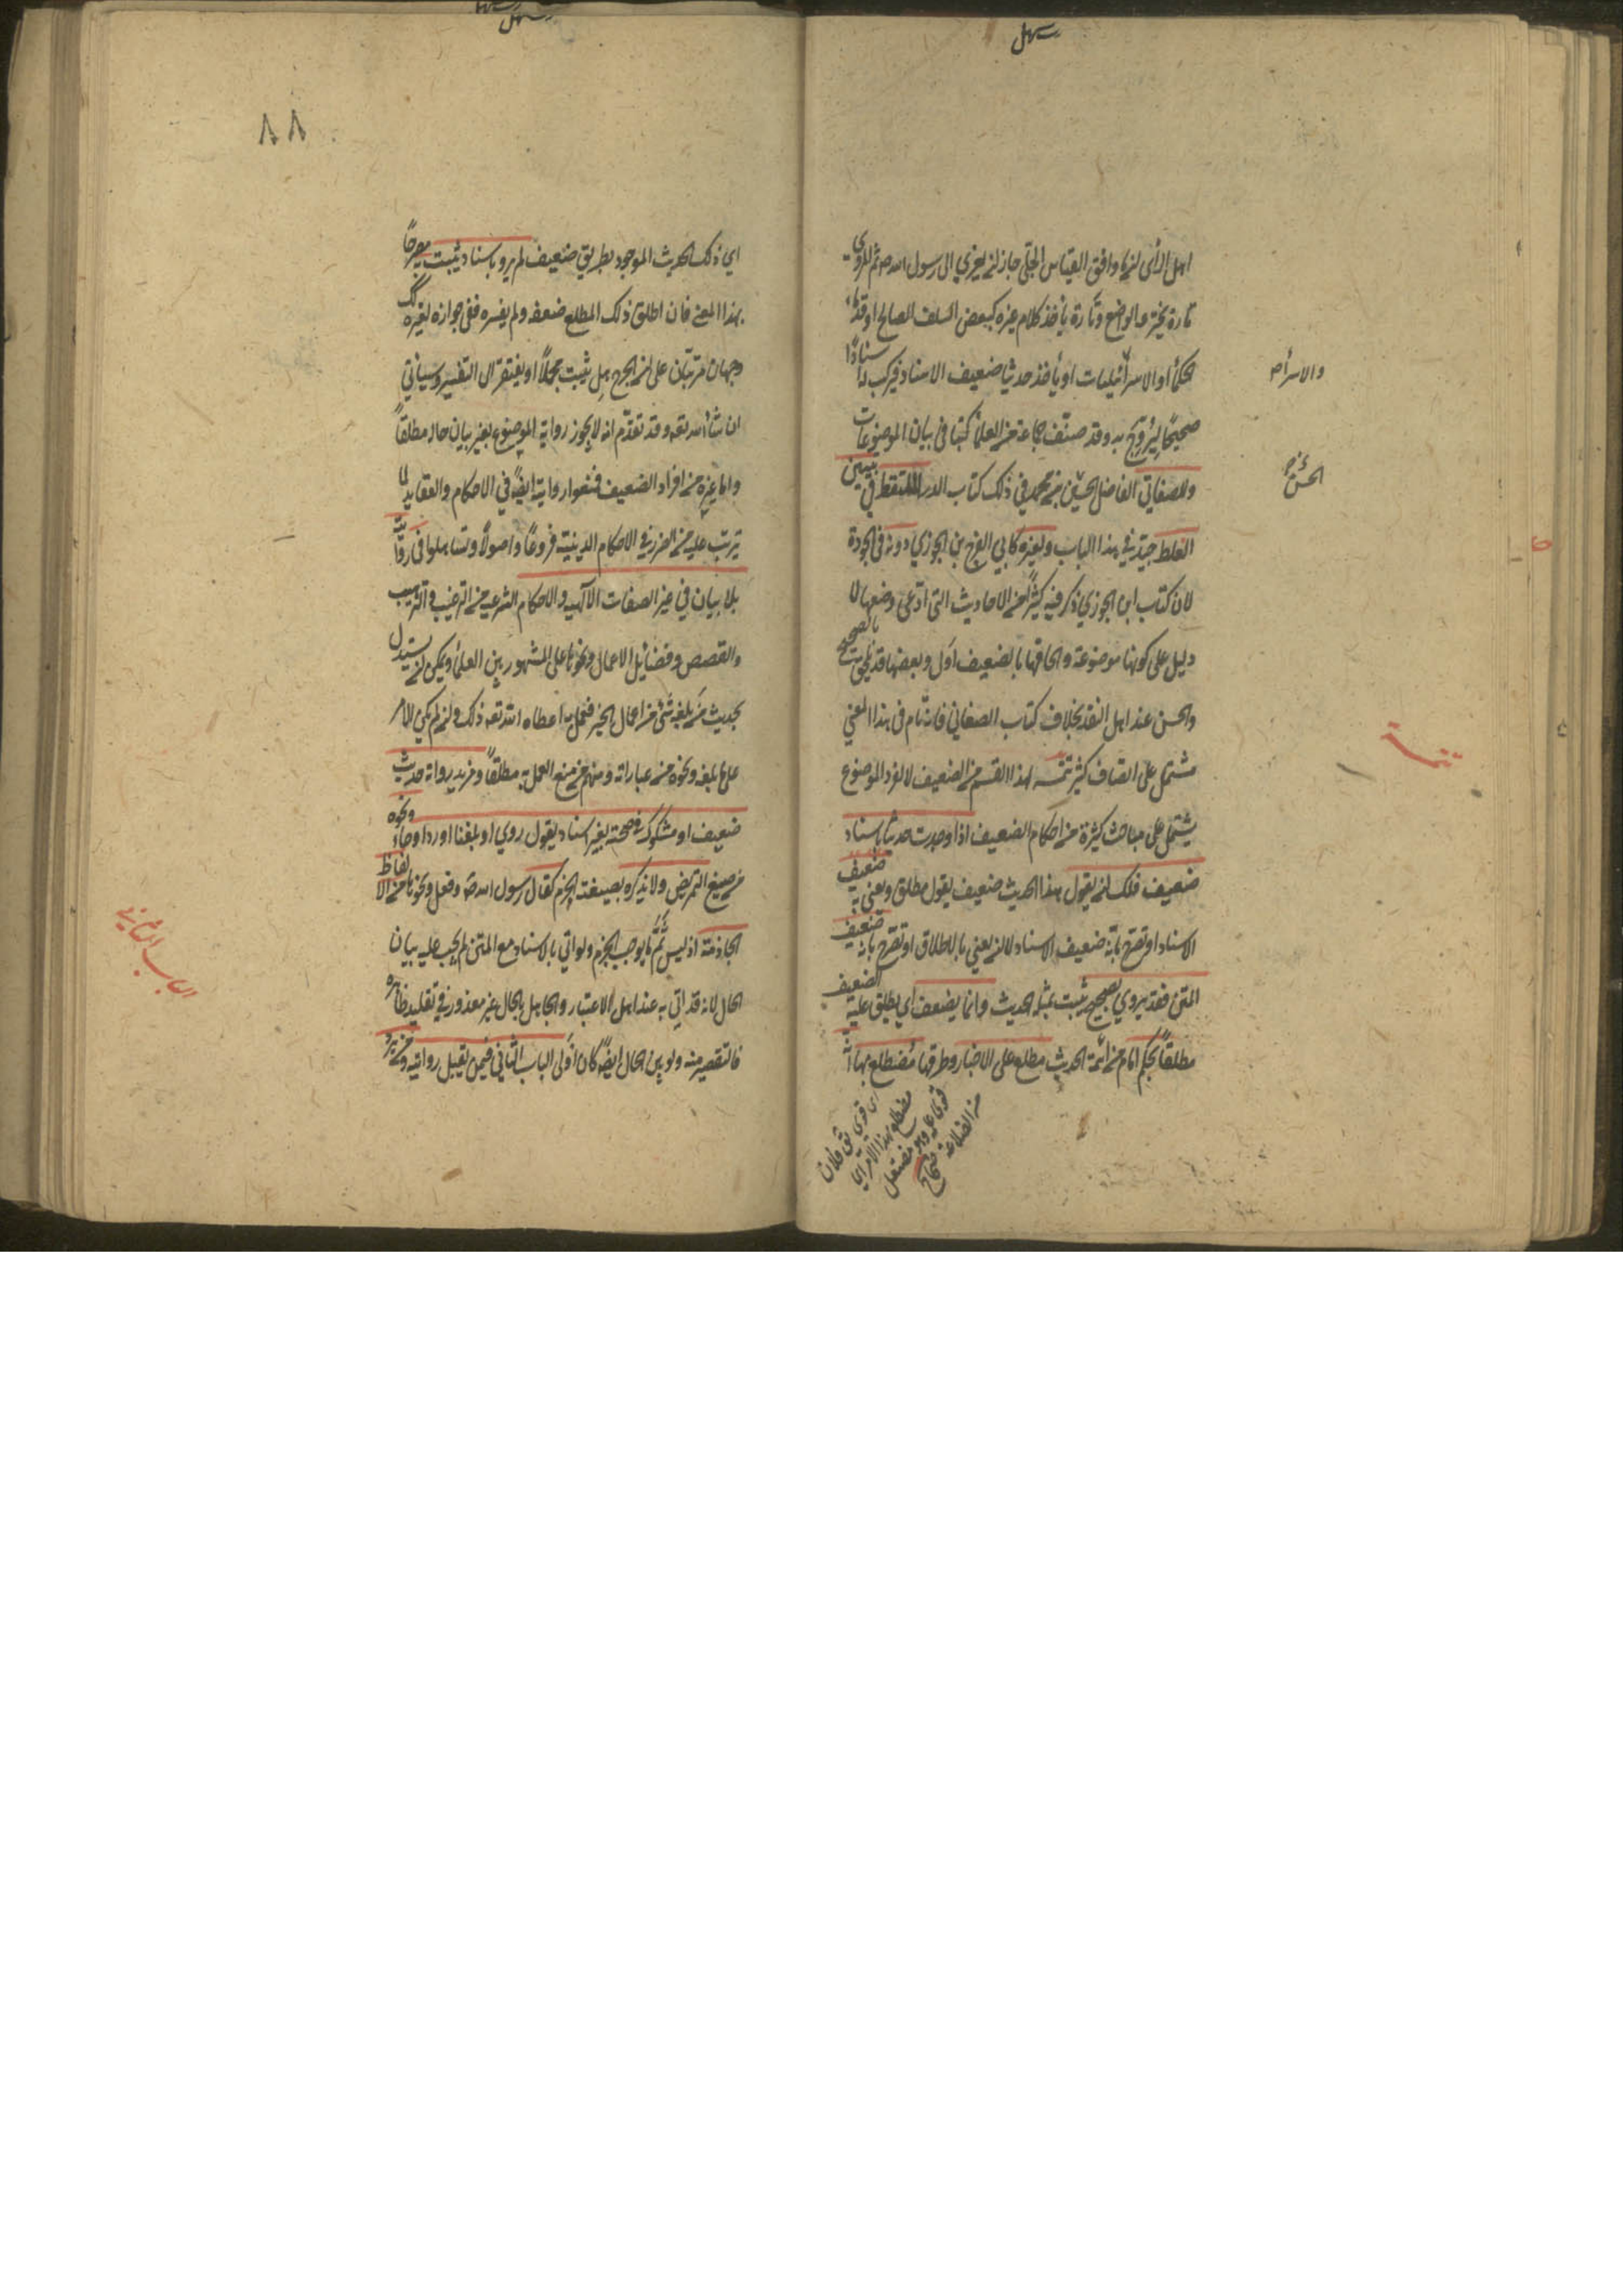 سهل
اهل الرأي ان ما وافق القياس الجلي جاز ان يعزي الى رسول الله ص ثم المروي
تارة يخترعه الواضع وتارة يأخذ كلام غيره كبعض السلف الصالح او قدماء
الحكماء او الاسرائيليات او يأخذ حديثا ضعيف الاسناد فيركب له اسنادًا
صحيحًا ليروّج به وقد صنّف جماعة من العلماء كتبا في بيان الموضوعات
وللصغاني الفاضل الحسن بن محمد في ذلك كتاب الدر الملتقط في تبيين
الغلط جيّد في هذا الباب ولغيره كابي الفرج بن الجوزي دونه في الجودة
لان كتاب ابن الجوزي ذكر فيه كثيرًا من الاحاديث التي ادّعى وضعها لا
دليل على كونها موضوعة والحاقها بالضعيف اولى وبعضها قد يلحق بالصحيح
والحسن عند اهل النقد بخلاف كتاب الصغاني فانه تام في هذا المعني
مشتمل على انصاف كثير تتمة لهذا القسم من الضعيف لا لفرد الموضوع
يشتمل على مباحث كثيرة من احكام الضعيف اذا وجدت حديثا باسناد
ضعيف فلك ان يقول هذا الحديث ضعيف يقول مطلق ويعني به ضعيف
الاسناد او تصرح بانّه ضعيف الاسناد لا ان يعني بالاطلاق او تصرح بانه ضعيف
المتن فقد يروي بصحيح يثبت بمثله الحديث وانما يضعف اي يطلق عليه الضعيف
مطلقًا بحكم امام من ائمة الحديث مطلع على الاخبار وطرقها مضطلع بها انّه
والاسرا ص
الحسن
تتمة
اي قوي ق فلان
مضطلع بهذا الامر اي
قوي عليه وهو مفتعل
من الضلاعة صحاح
سهل
٨٨
اي ذلك الحديث الموجود بطريق ضعيف لم يرو باسناد يثبت مصرحًا
بهذا المعنى فان اطلق ذلك المطلع ضعفه ولم يفسره ففي جوازه لغيره كك
وجهان مترتبان على ان الجرح هل يثبت مجملًا او يفتقر الى التفسير وسيأتي
ان شاء الله تعه وقد تقدّم انه لا يجوز رواية الموضوع بغير بيان حاله مطلقًا
واما غيره من افراد الضعيف فمنعوا روايته ايضًا في الاحكام والعقايد لما
يترتب عليه من الضرر في الاحكام الدينية فروعًا واصولًا وتساهلوا في روايته
بلا بيان في غير الصفات الالهيه والاحكام الشرعيه من الترغيب والترهيب
والقصص وفضائل الاعمال ونحوها على المشهور بين العلماء ويمكن ان يستدل
بحديث من بلغه شئ من اعمال الخير فعمل به اعطاه الله تعه ذلك وان لم يكن الامر
على ما بلغه ونحوه من عباراته ومنهم من منع العمل به مطلقًا ومريد رواية حديث
ضعيف او مشكوك في صحته بغير اسناد يقول روي او بلغنا او ورد او جاء ونحوه
من صيغ التمريض ولا يذكره بصيغة الجزم كقال رسول الله ص وفعل ونحوها من الالفاظ
الجازمة اذ ليس ثَمَّ ما يوجب الجزم ولو اتي بالاسناد مع المتن لم يجب عليه بيان
الحال لانه قد اتي به عند اهل الاعتبار والجاهل بالحال غير معذور في تقليد ظاهره
فالتقصير منه ولو بين الحال ايضًا كان اولى الباب الثاني فيمن تقبل روايته ومن ترد
الباب الثاني